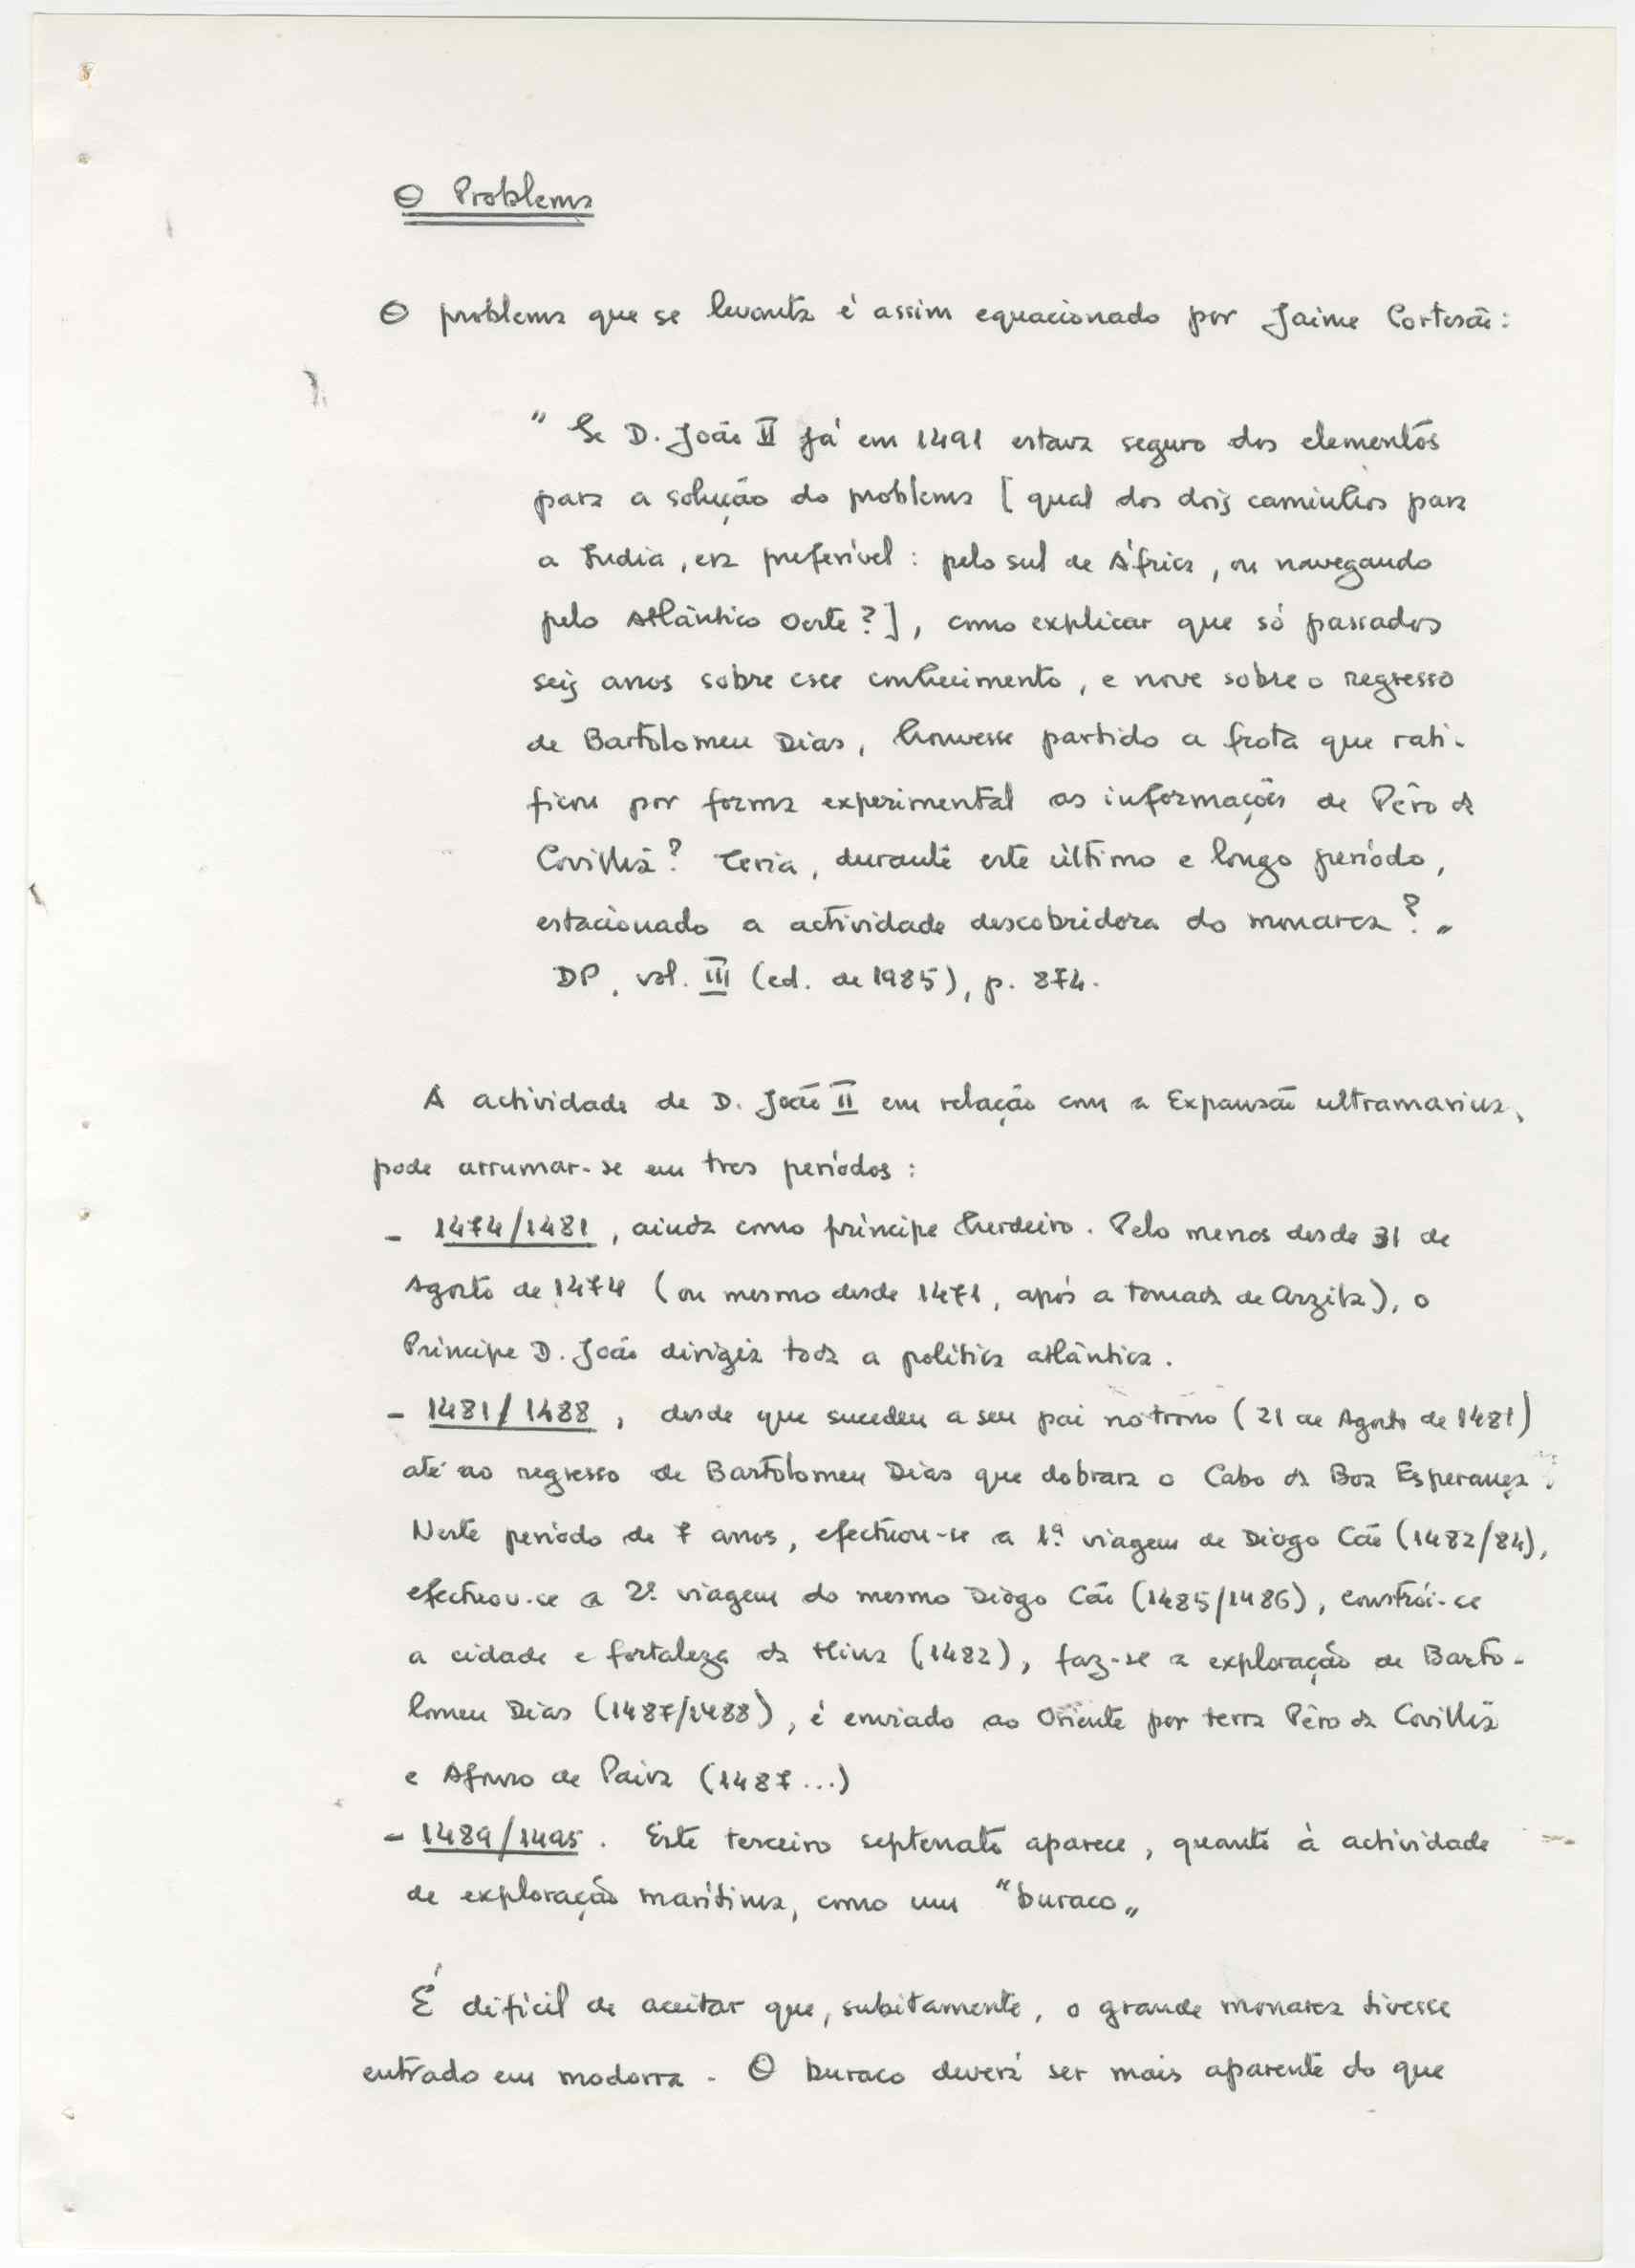 O Problema
O problema que se levanta é assim equacionado por Jaime Cortesão:
"Se D. João II já em 1491 estava seguro dos elementos
para a solução do problema [qual dos dois caminhos para
a India, era preferível: pelo sul de África, ou navegando
pelo Atlântico Oeste?], como explicar que só passados
seis anos sobre esse conhecimento, e nove sobre o regresso
de Bartolomeu Dias, houvesse partido a frota que rati-
ficou por forma experimental as informações de Pêro da
Covilhã? Teria, durante este último e longo período,
estacionado a actividade descobridora do monarca?"
DP, vol. III (ed. de 1985), p. 874.
A actividade de D. João II em relação com a Expansão ultramarina,
pode arrumar-se em tres períodos:
- 1474/1481, ainda como príncipe herdeiro. Pelo menos desde 31 de
Agosto de 1474 (ou mesmo desde 1471, após a tomada de Arzila), o
Príncipe D. João dirigia toda a política atlântica.
- 1481/1488, desde que sucedeu a seu pai no trono (21 de Agosto de 1481)
até ao regresso de Bartolomeu Dias que dobrara o Cabo da Boa Esperança.
Neste período de 7 anos, efectuou-se a 1ª viagem de Diogo Cão (1482/84),
efectuou-se a 2ª viagem do mesmo Diogo Cão (1485/1486), constrói-se
a cidade e fortaleza da Mina (1482), faz-se a exploração de Barto-
lomeu Dias (1487/1488), é enviado ao Oriente por terra Pêro da Covilhã
e Afonso de Paiva (1487...)
- 1489/1495. Este terceiro septenato aparece, quanto à actividade
de exploração marítima, como um "buraco"
É difícil de aceitar que, subitamente, o grande monarca tivesse
entrado em modorra. O buraco deverá ser mais aparente do que